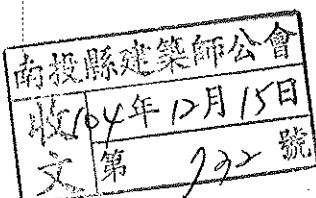 南投縣建築師公會
收文
104年12月15日
第 792 號